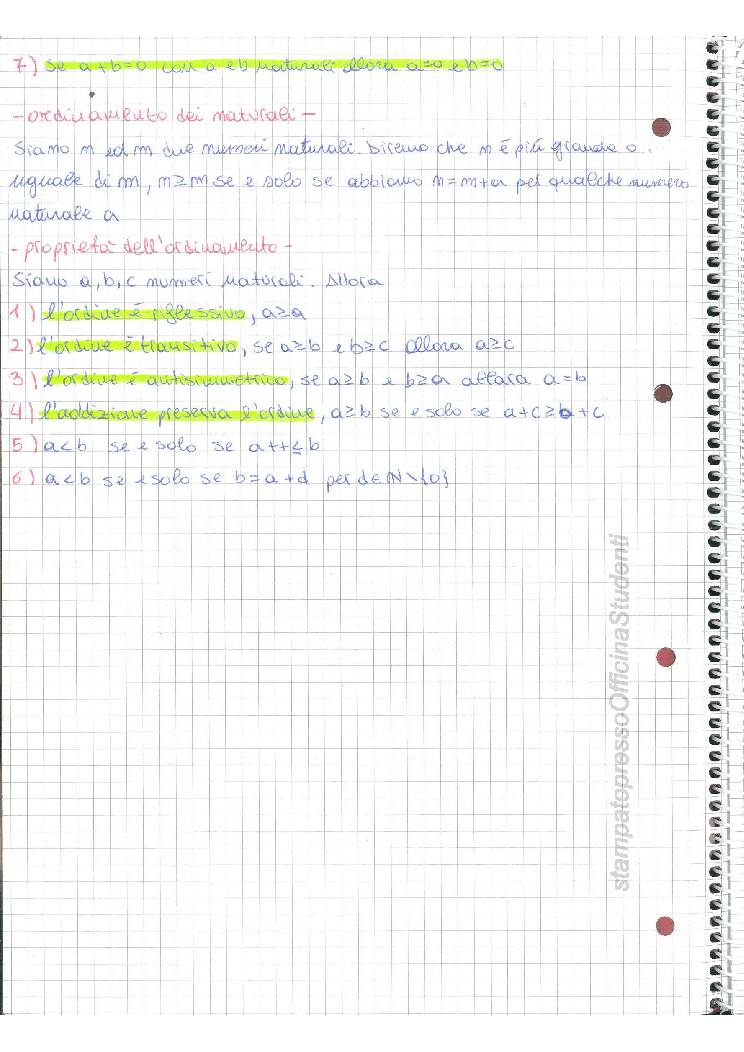 7) Se a+b=0 con a e b naturali allora a=0 e b=0
-ordinamento dei naturali-
Siano n ed m due numeri naturali. Diremo che n è più grande o
uguale di m, n≥m se e solo se abbiamo n=m+a per qualche numero
naturale a
-proprietà dell'ordinamento-
Siano a, b, c numeri naturali. Allora
1) l'ordine è riflessivo, a≥a
2) l'ordine è transitivo, se a≥b e b≥c allora a≥c
3) l'ordine è antisimmetrico, se a≥b e b≥a allora a=b
4) l'addizione preserva l'ordine, a≥b se e solo se a+c≥b+c
5) a<b se e solo se a++≤b
6) a<b se e solo se b=a+d per d∈N\{0}
stampatopressoOfficinaStudenti